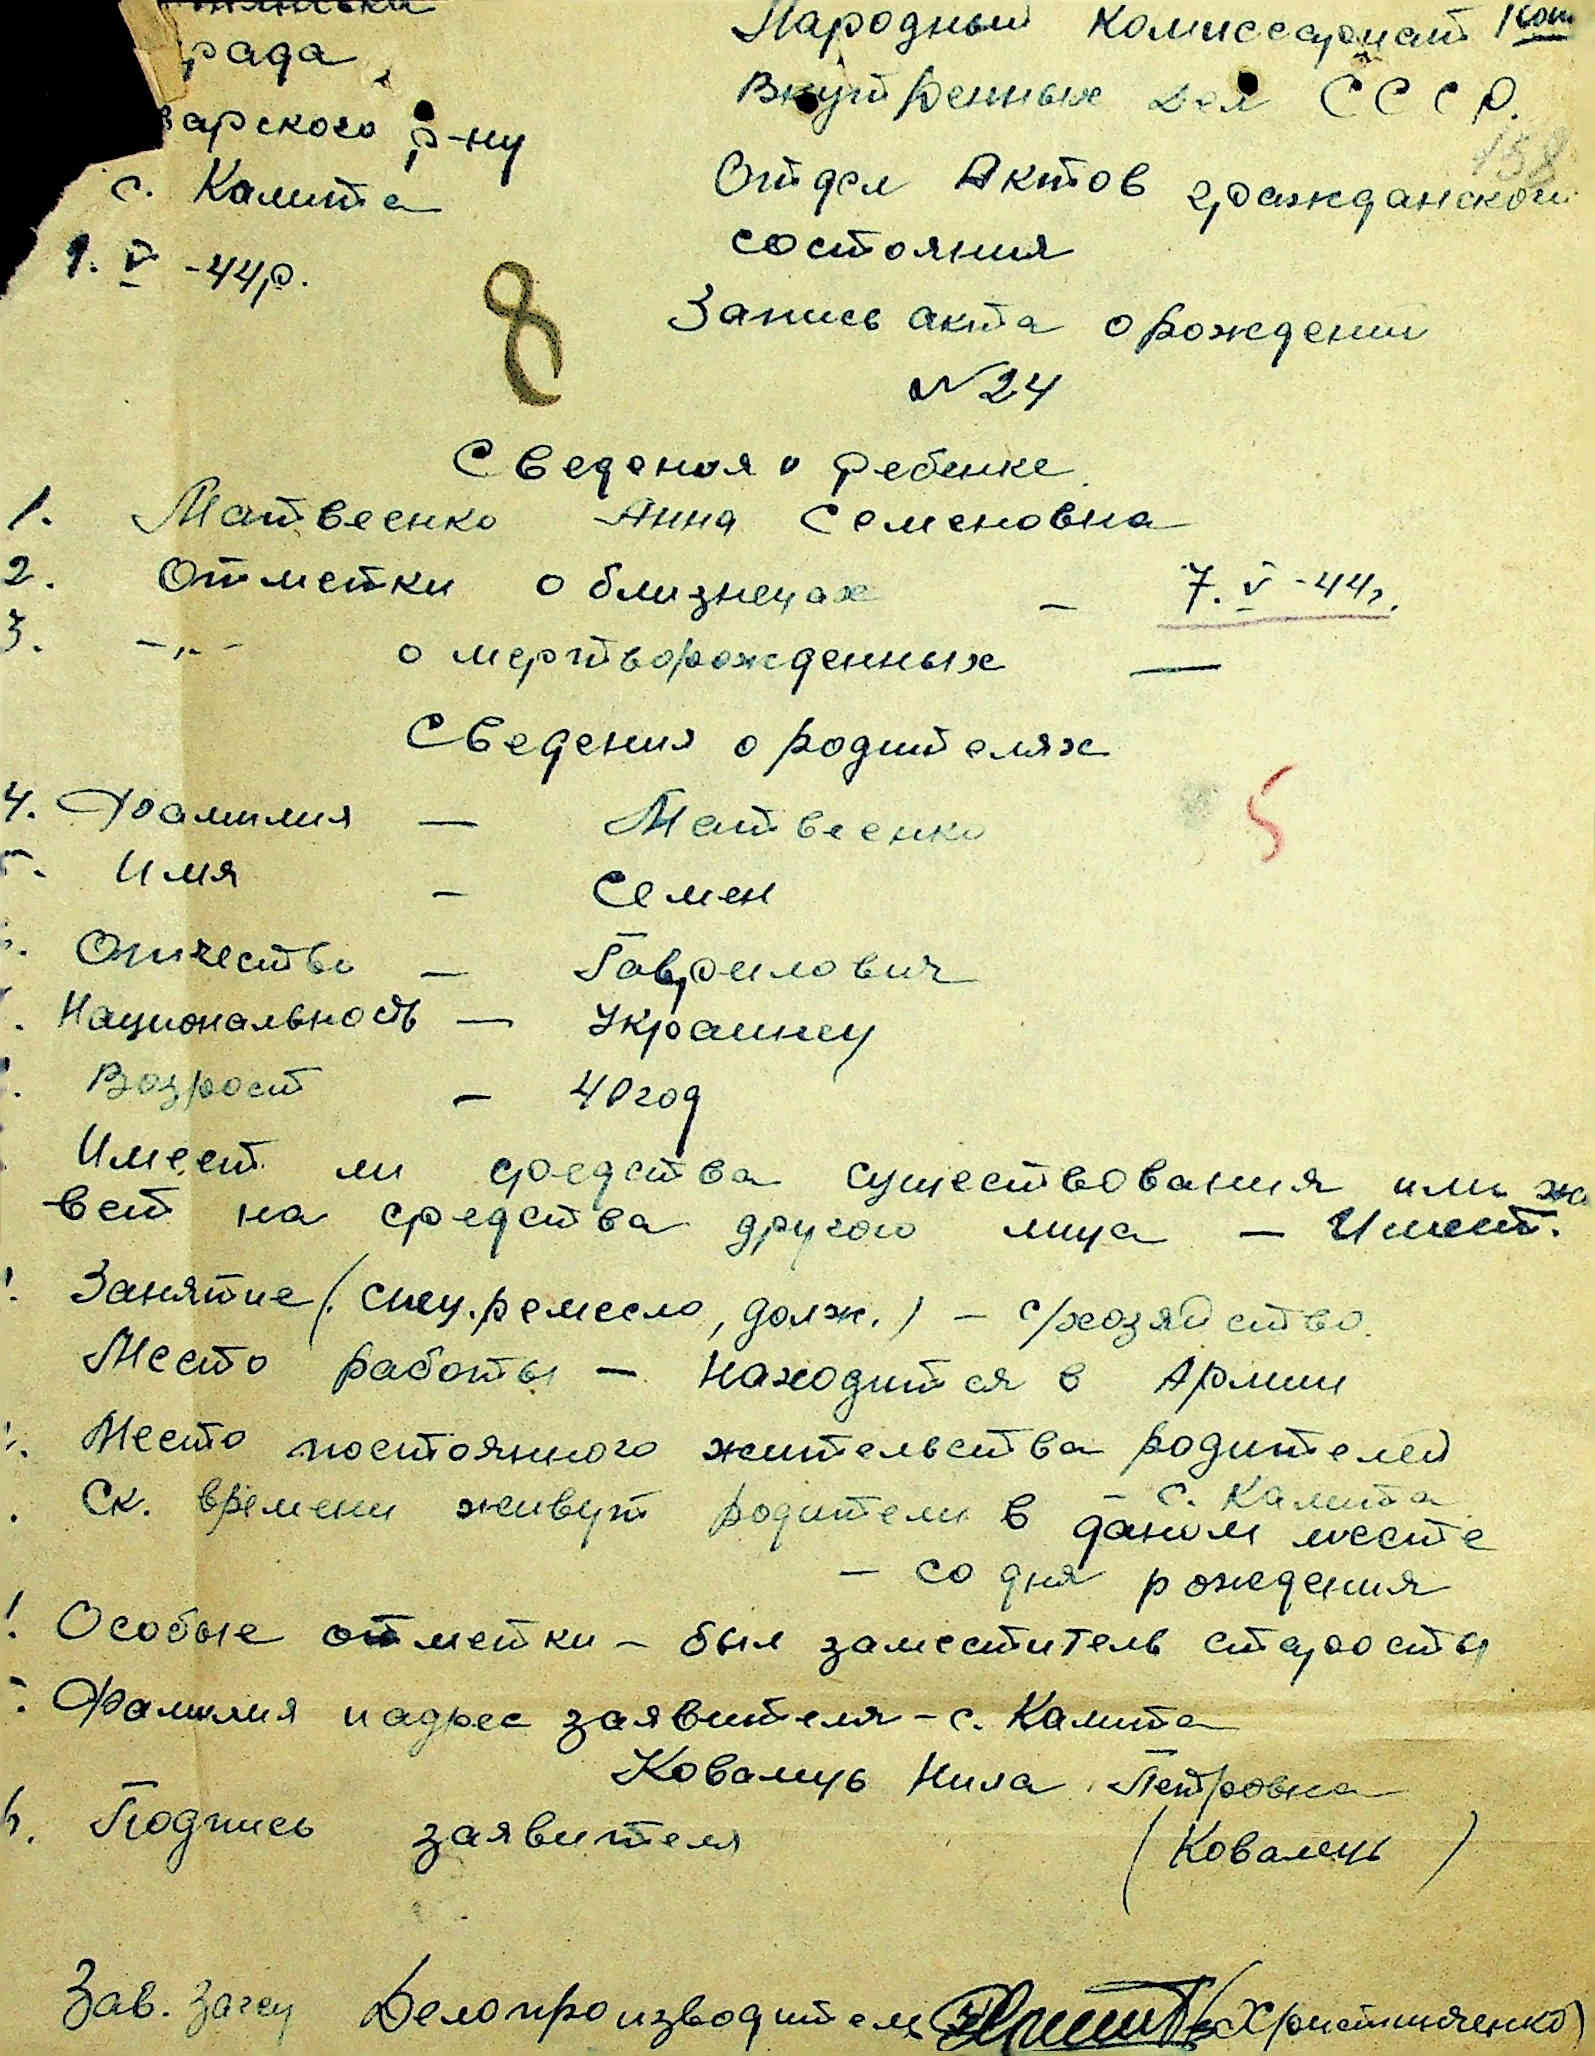 рада
варского р-ну
с. Калита
9. V -44р.
Народный комиссариат Коп
Внутренных дел СССР.
158
Отдел Актов гражданской
состояния
8
Запись акта о рождении
N 24
Сведения о ребенке.
1. Матвеенко Анна Семеновна
2. Отметки о близнецах - 7. V -44г.
3. -„- о мертворожденных —
Сведения о родителях
4. Фамилия — Матвеенко
5
5. Имя - Семен
Отчество - Гаврилович
Национальность — Украинец
Возрост - 40 год
Имеет ли средства существования или жи
вет на средства другого лица - Имеет.
Занятие (спец. ремесло, долж.) - с/хозяйство.
Место работы - находится в Армии
Место постоянного жительства родителей
- с. Калита
Ск. времени живут родители в даном месте
- со дня рождения
Особые отметки - был заместитель старосты
Фамилия и адрес заявителя - с. Калита
Ковалець Нила Петровна
Подпись заявителя (Ковалець)
Зав. Загсу Делопроизводитель (Христинченко)